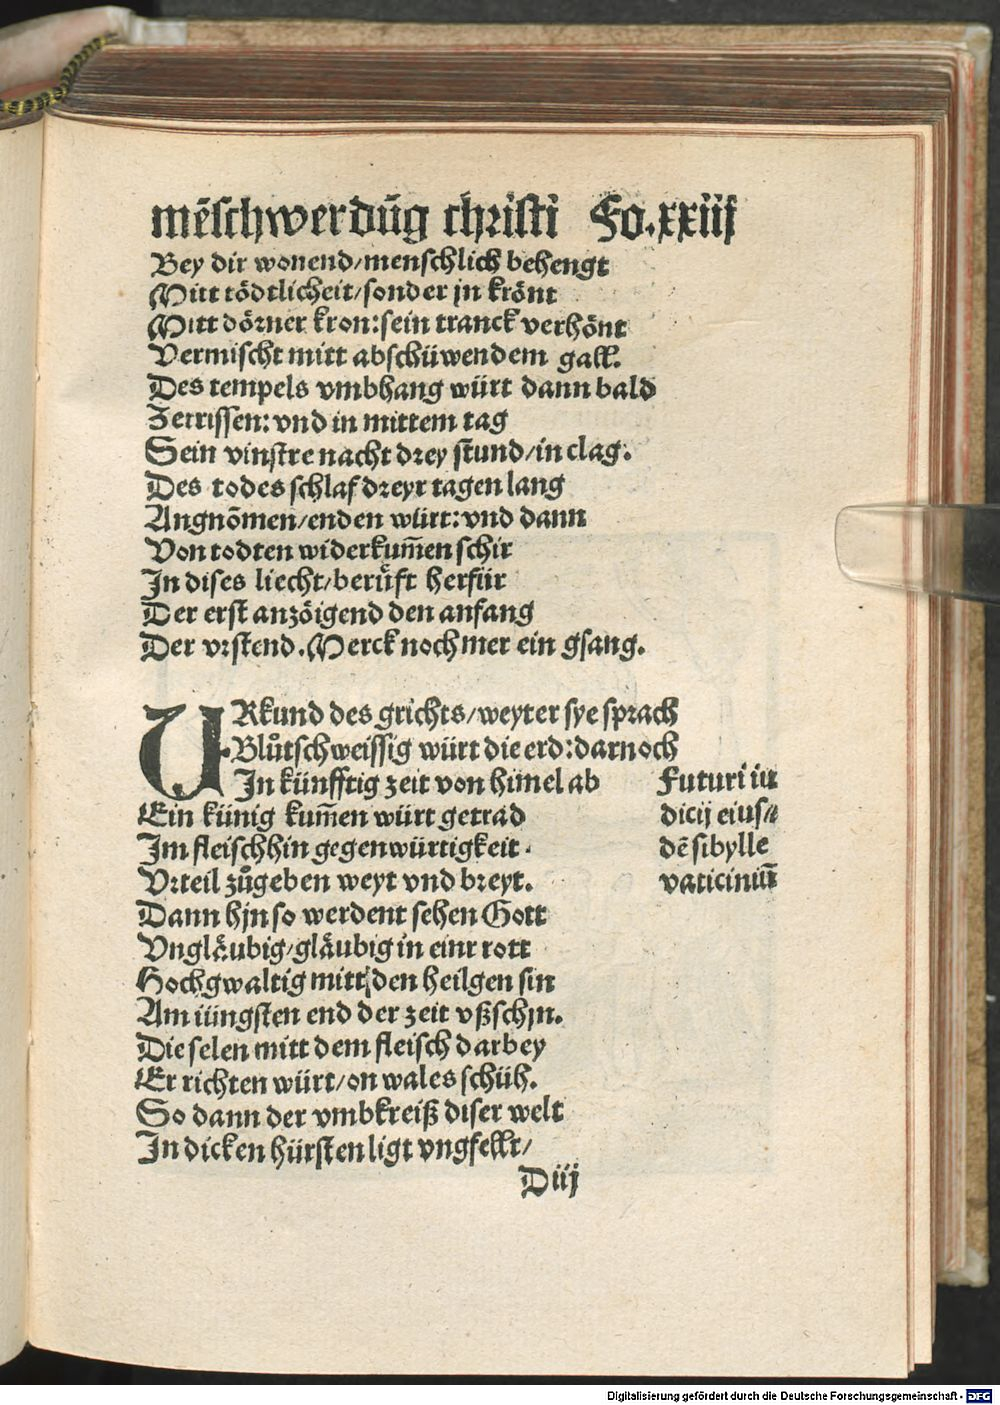 mẽschwerdũg christi Fo.xxiij
Bey dir wonend/menschlich behengt
Mitt tödtlicheit/sonder jn krönt
Mitt dörner kron:sein tranck verhönt
Vermischt mitt abschüwendem gall.
Des tempels vmbhang würt dann bald
Zerrissen:vnd in mittem tag
Sein vinstre nacht drey stund/in clag.
Des todes schlaf dreyr tagen lang
Angnõmen/enden würt:vnd dann
Von todten widerkum̃en schir
In dises liecht/berüfft herfür
Der erst anzöigend den anfang
Der vrstend.Merck noch mer ein gsang.
URkund des grichts/weyter sye sprach
Blůtschweissig würt die erd:darnoch
In künfftig zeit von himel ab
Ein künig kum̃en würt getrad
Im fleisch hin gegenwürtigkeit.
Vrteil zůgeben weyt vnd breyt.
Dann hjn so werdent sehen Gott
Vngläubig/gläubig in einr rott
Hochgwaltig mitt den heilgen sin
Am iüngsten end der zeit vßschjn.
Die selen mitt dem fleisch darbey
Er richten würt/on wales schüh.
So dann der vmbkreiß diser welt
In dicken hürsten ligt vngfellt/
Futuri iu
dicij eius/
dẽ sibylle
vaticiniũ
Diij
Digitalisierung gefördert durch die Deutsche Forschungsgemeinschaft - DFG